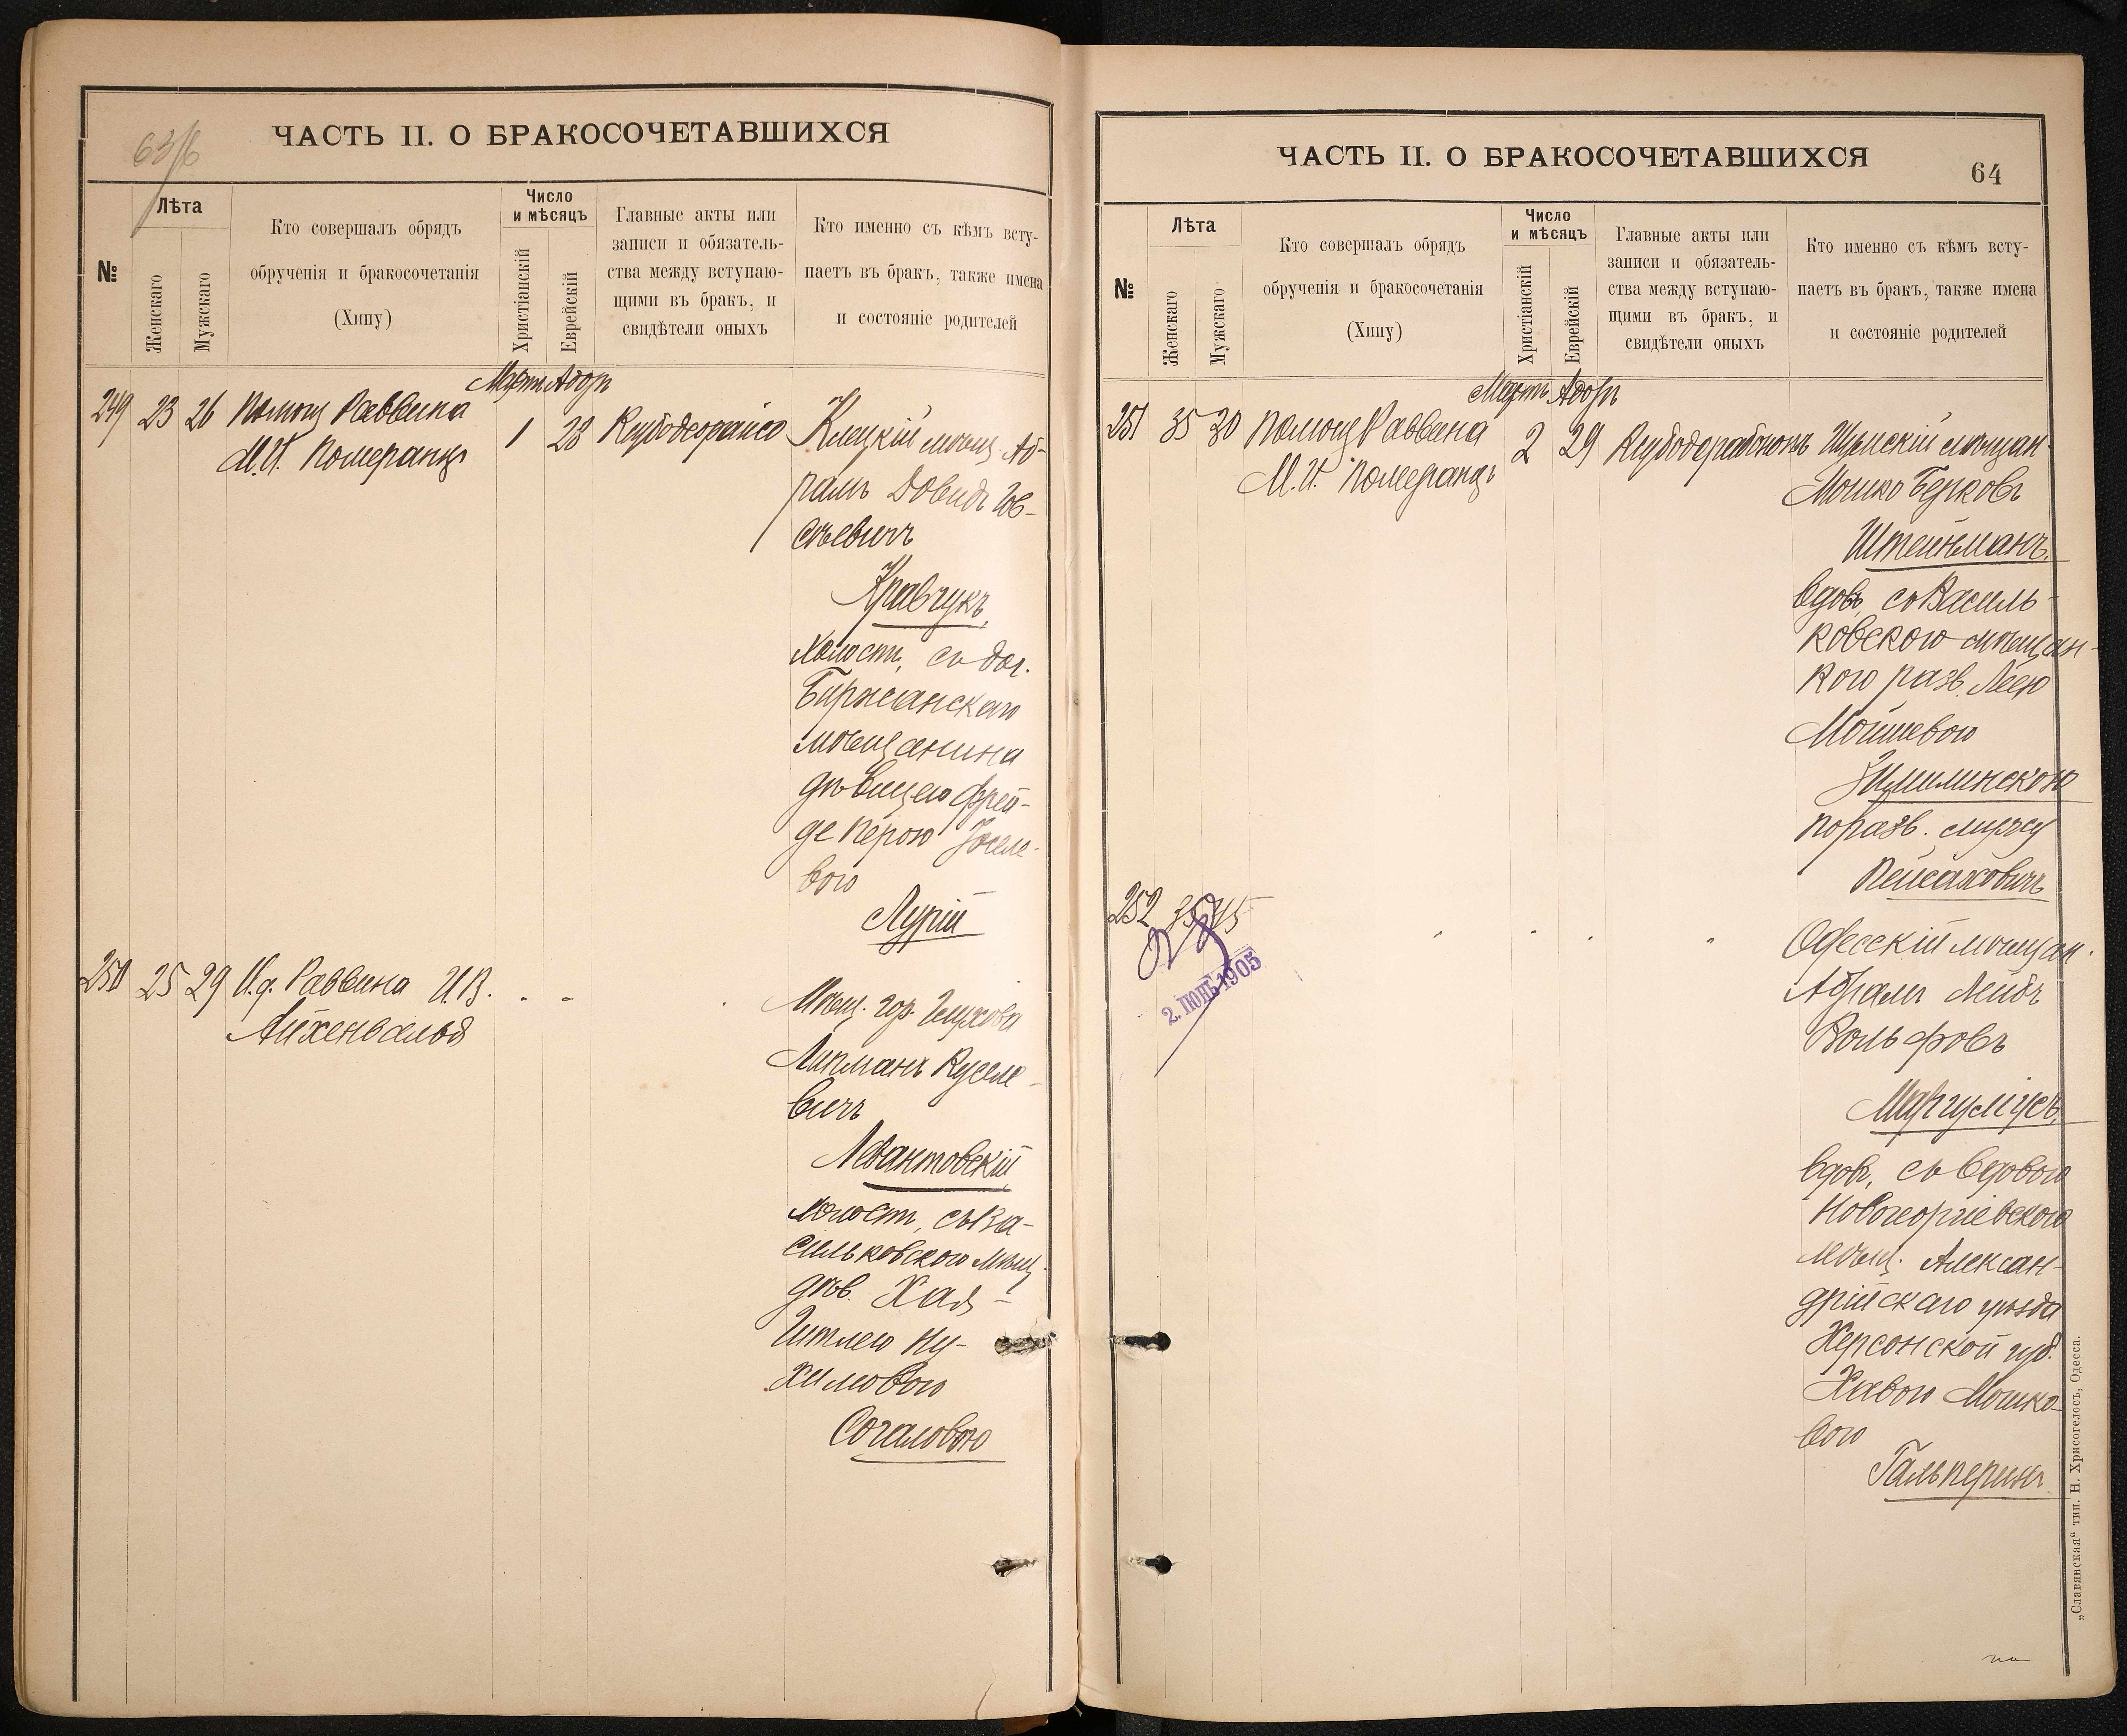 63/6
ЧАСТЬ II. О БРАКОСОЧЕТАВШИХСЯ
№
Лѣта
Женскаго
Мужскаго
Кто совершалъ обрядъ
обрученія и бракосочетанія
(Хипу)
Число
и мѣсяцъ
Христіанскій
Еврейскій
Главные акты или
записи и обязатель-
ства между вступаю-
щими въ бракъ, и
свидѣтели оныхъ
Кто именно съ кѣмъ всту-
паетъ въ бракъ, также имена
и состояніе родителей
Мартъ Адоръ
249 23 26 Помощ Раввина 1 28 Клецкій мѣщ. Аб-
М.И. Померанцъ
рамъ Довидъ Іов-
сѣевичъ
Кравчукъ,
холост, съ доч.
Биржанскаго
мѣщанина
дѣвицею Фрей-
де Перою Іоселе-
вою
Лурій
250 25 29 И.д. Раввина И.В.
Айхенвальд
Мѣщ. гор. Глухова
Липманъ Куселе-
вичъ
Левантовскій,
холост, съ Ва-
сильковскою мѣщ.
дѣв. Хая-
Гитлею Ну-
химовою
Согаловою
ЧАСТЬ II. О БРАКОСОЧЕТАВШИХСЯ
64
№
Лѣта
Женскаго
Мужскаго
Кто совершалъ обрядъ
обрученія и бракосочетанія
(Хипу)
Число
и мѣсяцъ
Христіанскій
Еврейскій
Главные акты или
записи и обязатель-
ства между вступаю-
щими въ бракъ, и
свидѣтели оныхъ
Кто именно съ кѣмъ всту-
паетъ въ бракъ, также имена
и состояніе родителей
Мартъ Адоръ
251 35 30 Помощ Раввина 2 29 мѣщан.
М.И. Померанцъ
Мошко Берковъ
Штейнманъ,
вдов, съ Василь-
ковскою мѣщан-
кою разв. Леею
Мошковою
по разв. мужу
Пейсаховичъ
252 35 45
2. ІЮНЬ 1905
Одесскій мѣщан.
Абрамъ Лейбъ
Вольфовъ
Маргуліусъ,
вдов, съ вдовою
Новогеоргіевскою
мѣщ. Алексан-
дрійскаго уѣзда
Херсонской губ.
Хавою Мошко-
вою
Гальперинъ
„Славянская" тип. Н. Хрисогелосъ, Одесса.